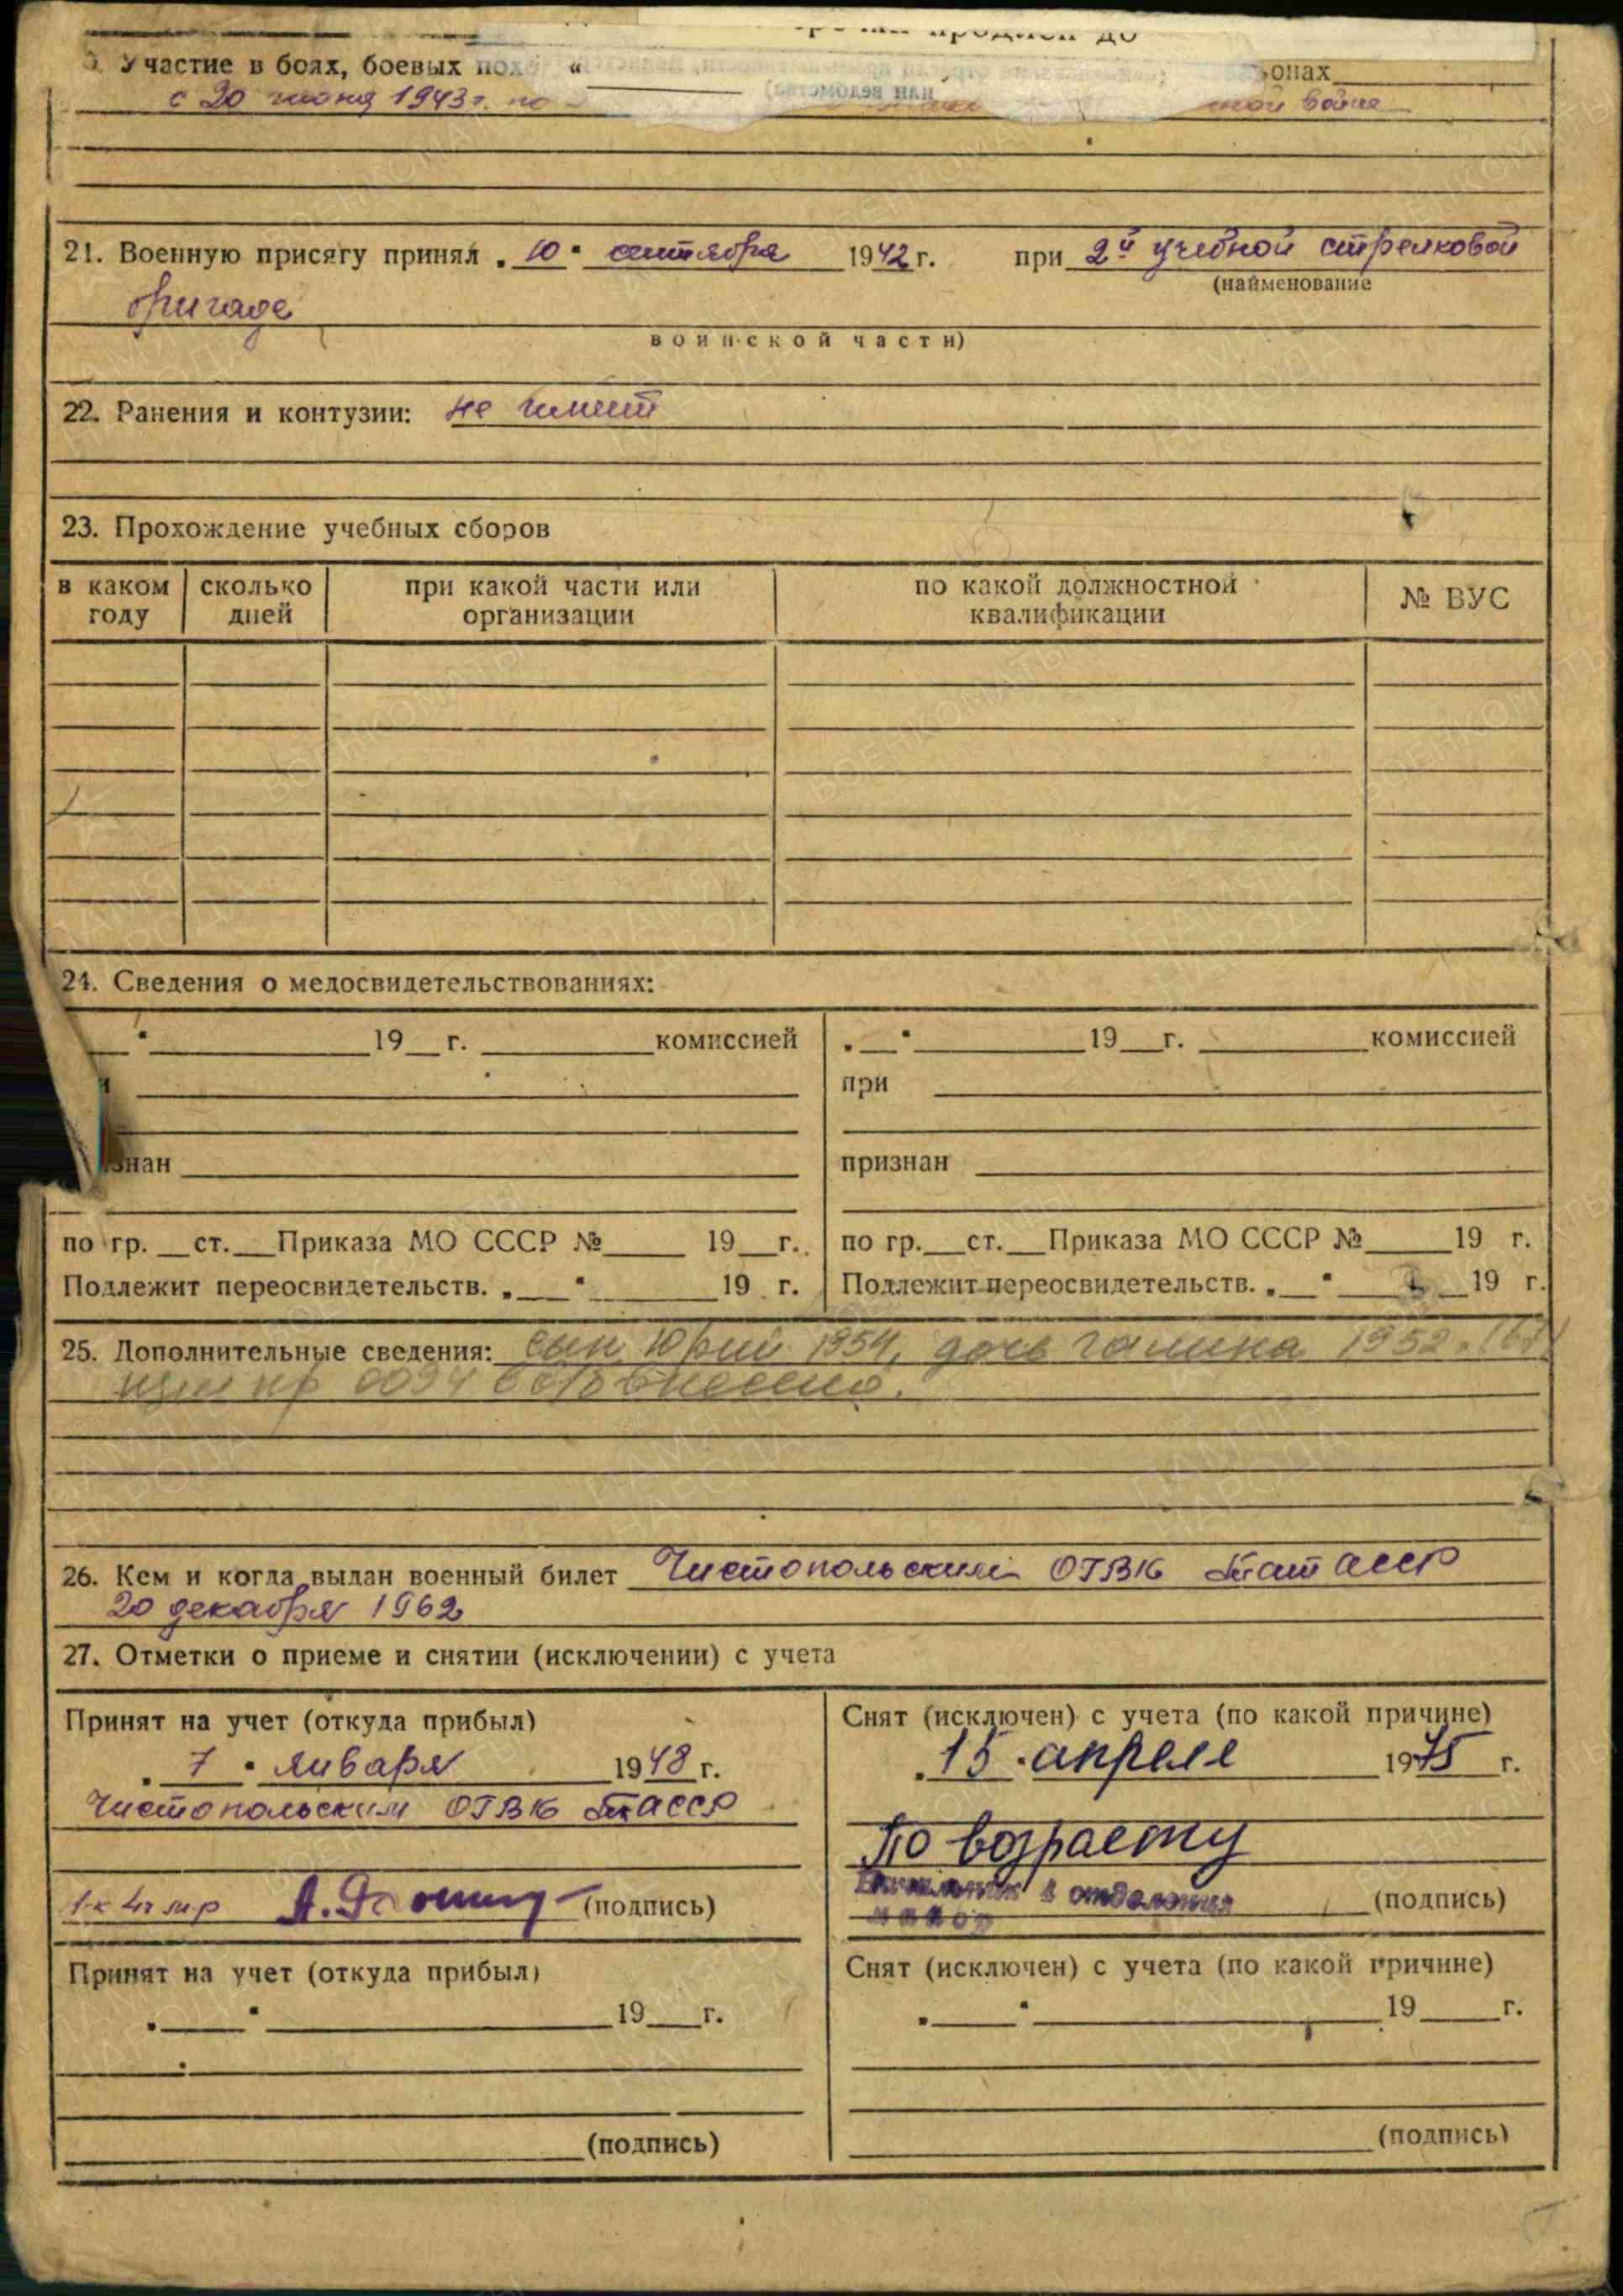 Участие в боях, боевых пох
онах
с 20 июня 1943 г. по
ной войне
21. Военную присягу принял „10" сентября 1942 г. при 2й учебной стрелковой
(наименование
бригаде
воинской части)
22. Ранения и контузии: не имеет
23. Прохождение учебных сборов
в каком году
сколько дней
при какой части или организации
по какой должностной квалификации
№ ВУС
24. Сведения о медосвидетельствованиях:
" 19 г. комиссией
„ " 19 г. комиссией
при
знан
признан
по гр. ст. Приказа МО СССР № 19 г.
по гр. ст. Приказа МО СССР № 19 г.
Подлежит переосвидетельств. „ " 19 г.
Подлежит переосвидетельств. „ " 19 г.
25. Дополнительные сведения: сын Юрий 1954, дочь Галина 1952.
26. Кем и когда выдан военный билет Чистопольским ОГВК ТатАССР
20 декабря 1962
27. Отметки о приеме и снятии (исключении) с учета
Принят на учет (откуда прибыл)
„7" января 1948 г.
Чистопольским ОГВК ТАССР
(подпись)
Снят (исключен) с учета (по какой причине)
„15" апреля 1975 г.
По возрасту
Начальник 1 отделения
майор
(подпись)
Принят на учет (откуда прибыл)
„ " 19 г.
(подпись)
Снят (исключен) с учета (по какой причине)
„ " 19 г.
(подпись)